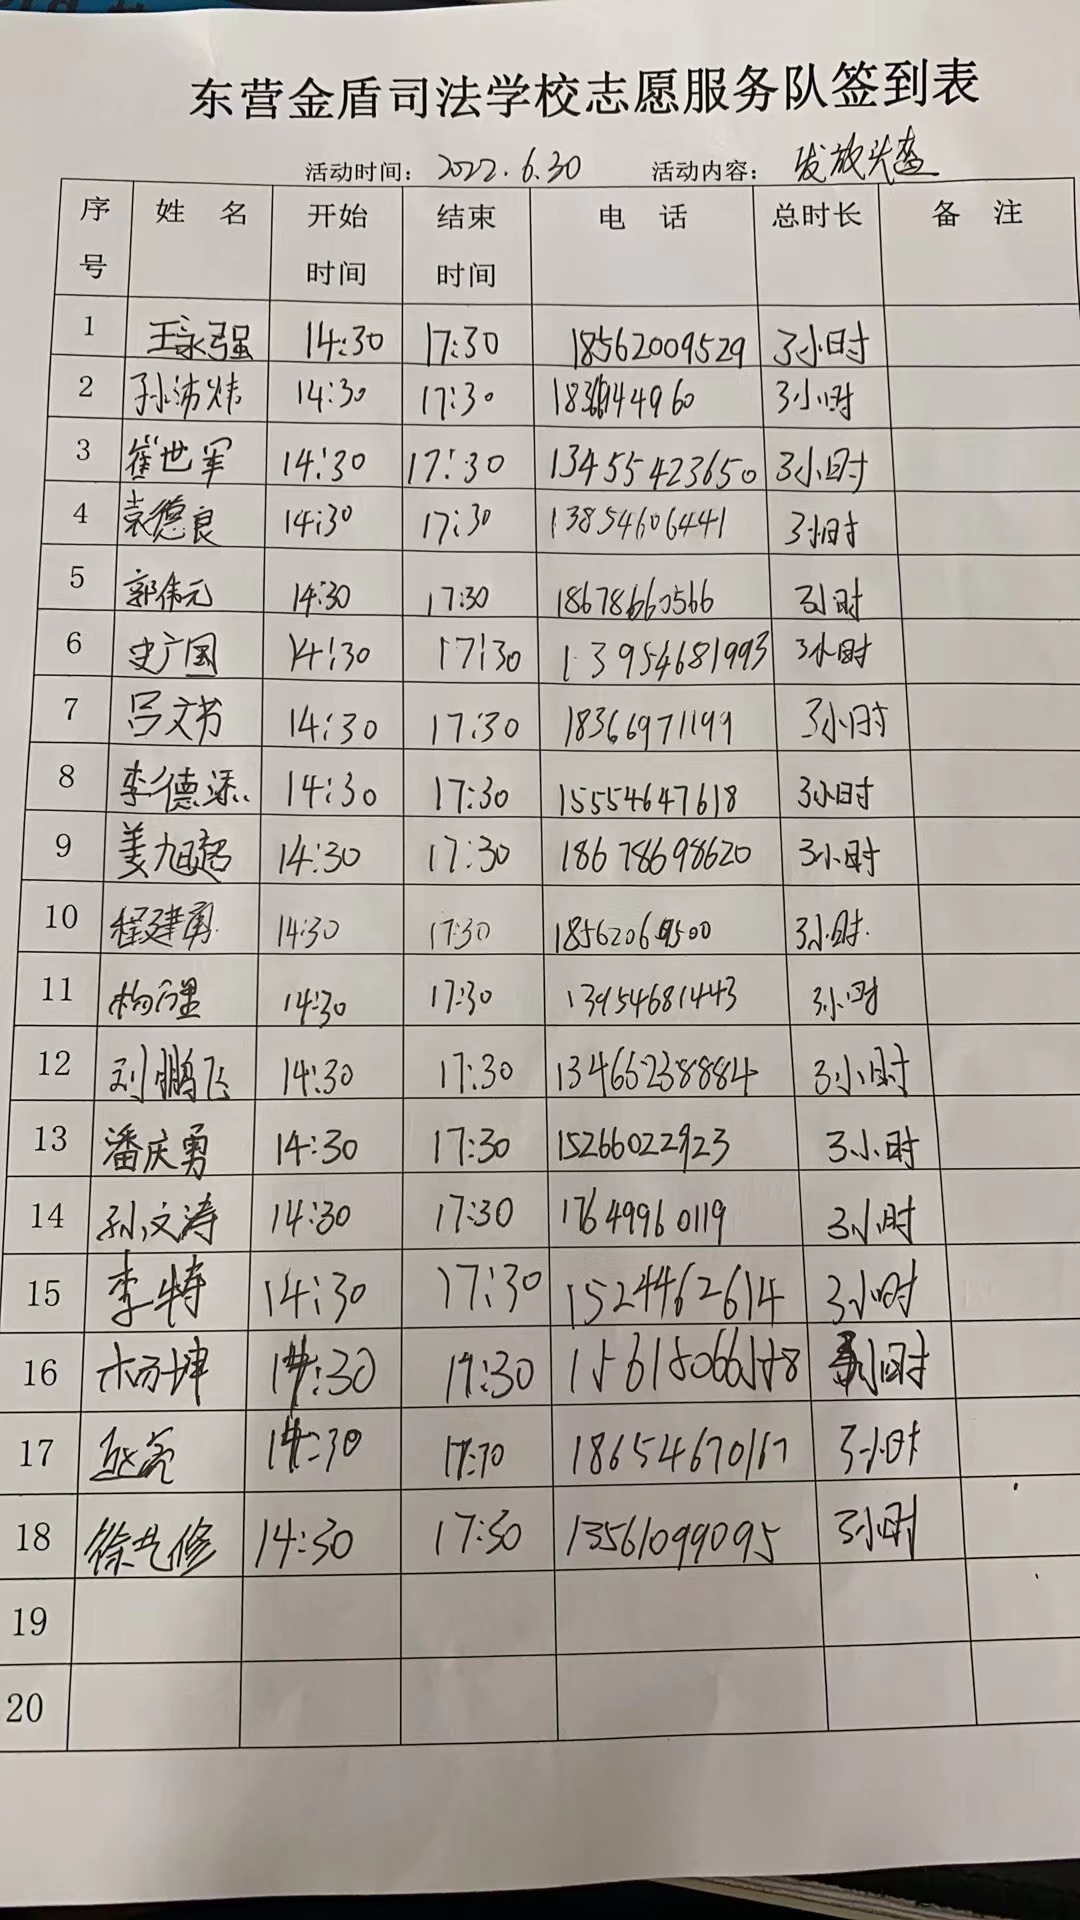 东营金盾司法学校志愿服务队签到表
活动时间：2022.6.30 活动内容：发放头盔
序号 姓 名 开始时间 结束时间 电 话 总时长 备 注
1 王永强 14:30 17:30 18562009529 3小时
2 孙沛炜 14:30 17:30 3小时
3 崔世军 14:30 17:30 13455423650 3小时
4 袁德良 14:30 17:30 13854606441 3小时
5 郭伟元 14:30 17:30 18678660566 3小时
6 史广国 14:30 17:30 13954681993 3小时
7 吕文书 14:30 17:30 18366971199 3小时
8 李德添 14:30 17:30 15554647618 3小时
9 姜旭超 14:30 17:30 18678698620 3小时
10 程建勇 14:30 17:30 18562069500 3小时
11 14:30 17:30 13954681443 3小时
12 刘鹏飞 14:30 17:30 13465238884 3小时
13 潘庆勇 14:30 17:30 15266022923 3小时
14 孙文涛 14:30 17:30 17649960119 3小时
15 李特 14:30 17:30 1524462614 3小时
16 14:30 17:30 3小时
17 14:30 17:30 18654670167 3小时
18 14:30 17:30 13561099095 3小时
19
20